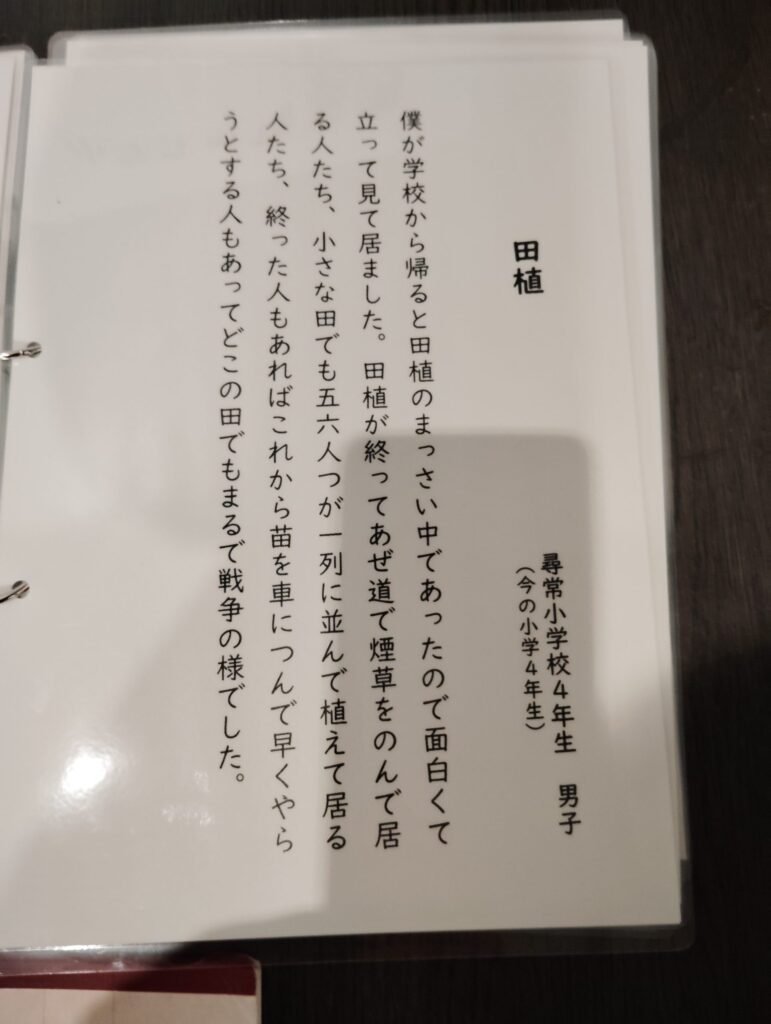 田植
尋常小学校４年生　男子
（今の小学４年生）
僕が学校から帰ると田植のまっさい中であったので面白くて
立って見て居ました。田植が終ってあぜ道で煙草をのんで居
る人たち、小さな田でも五六人つが一列に並んで植えて居る
人たち、終った人もあればこれから苗を車につんで早くやら
うとする人もあってどこの田でもまるで戦争の様でした。